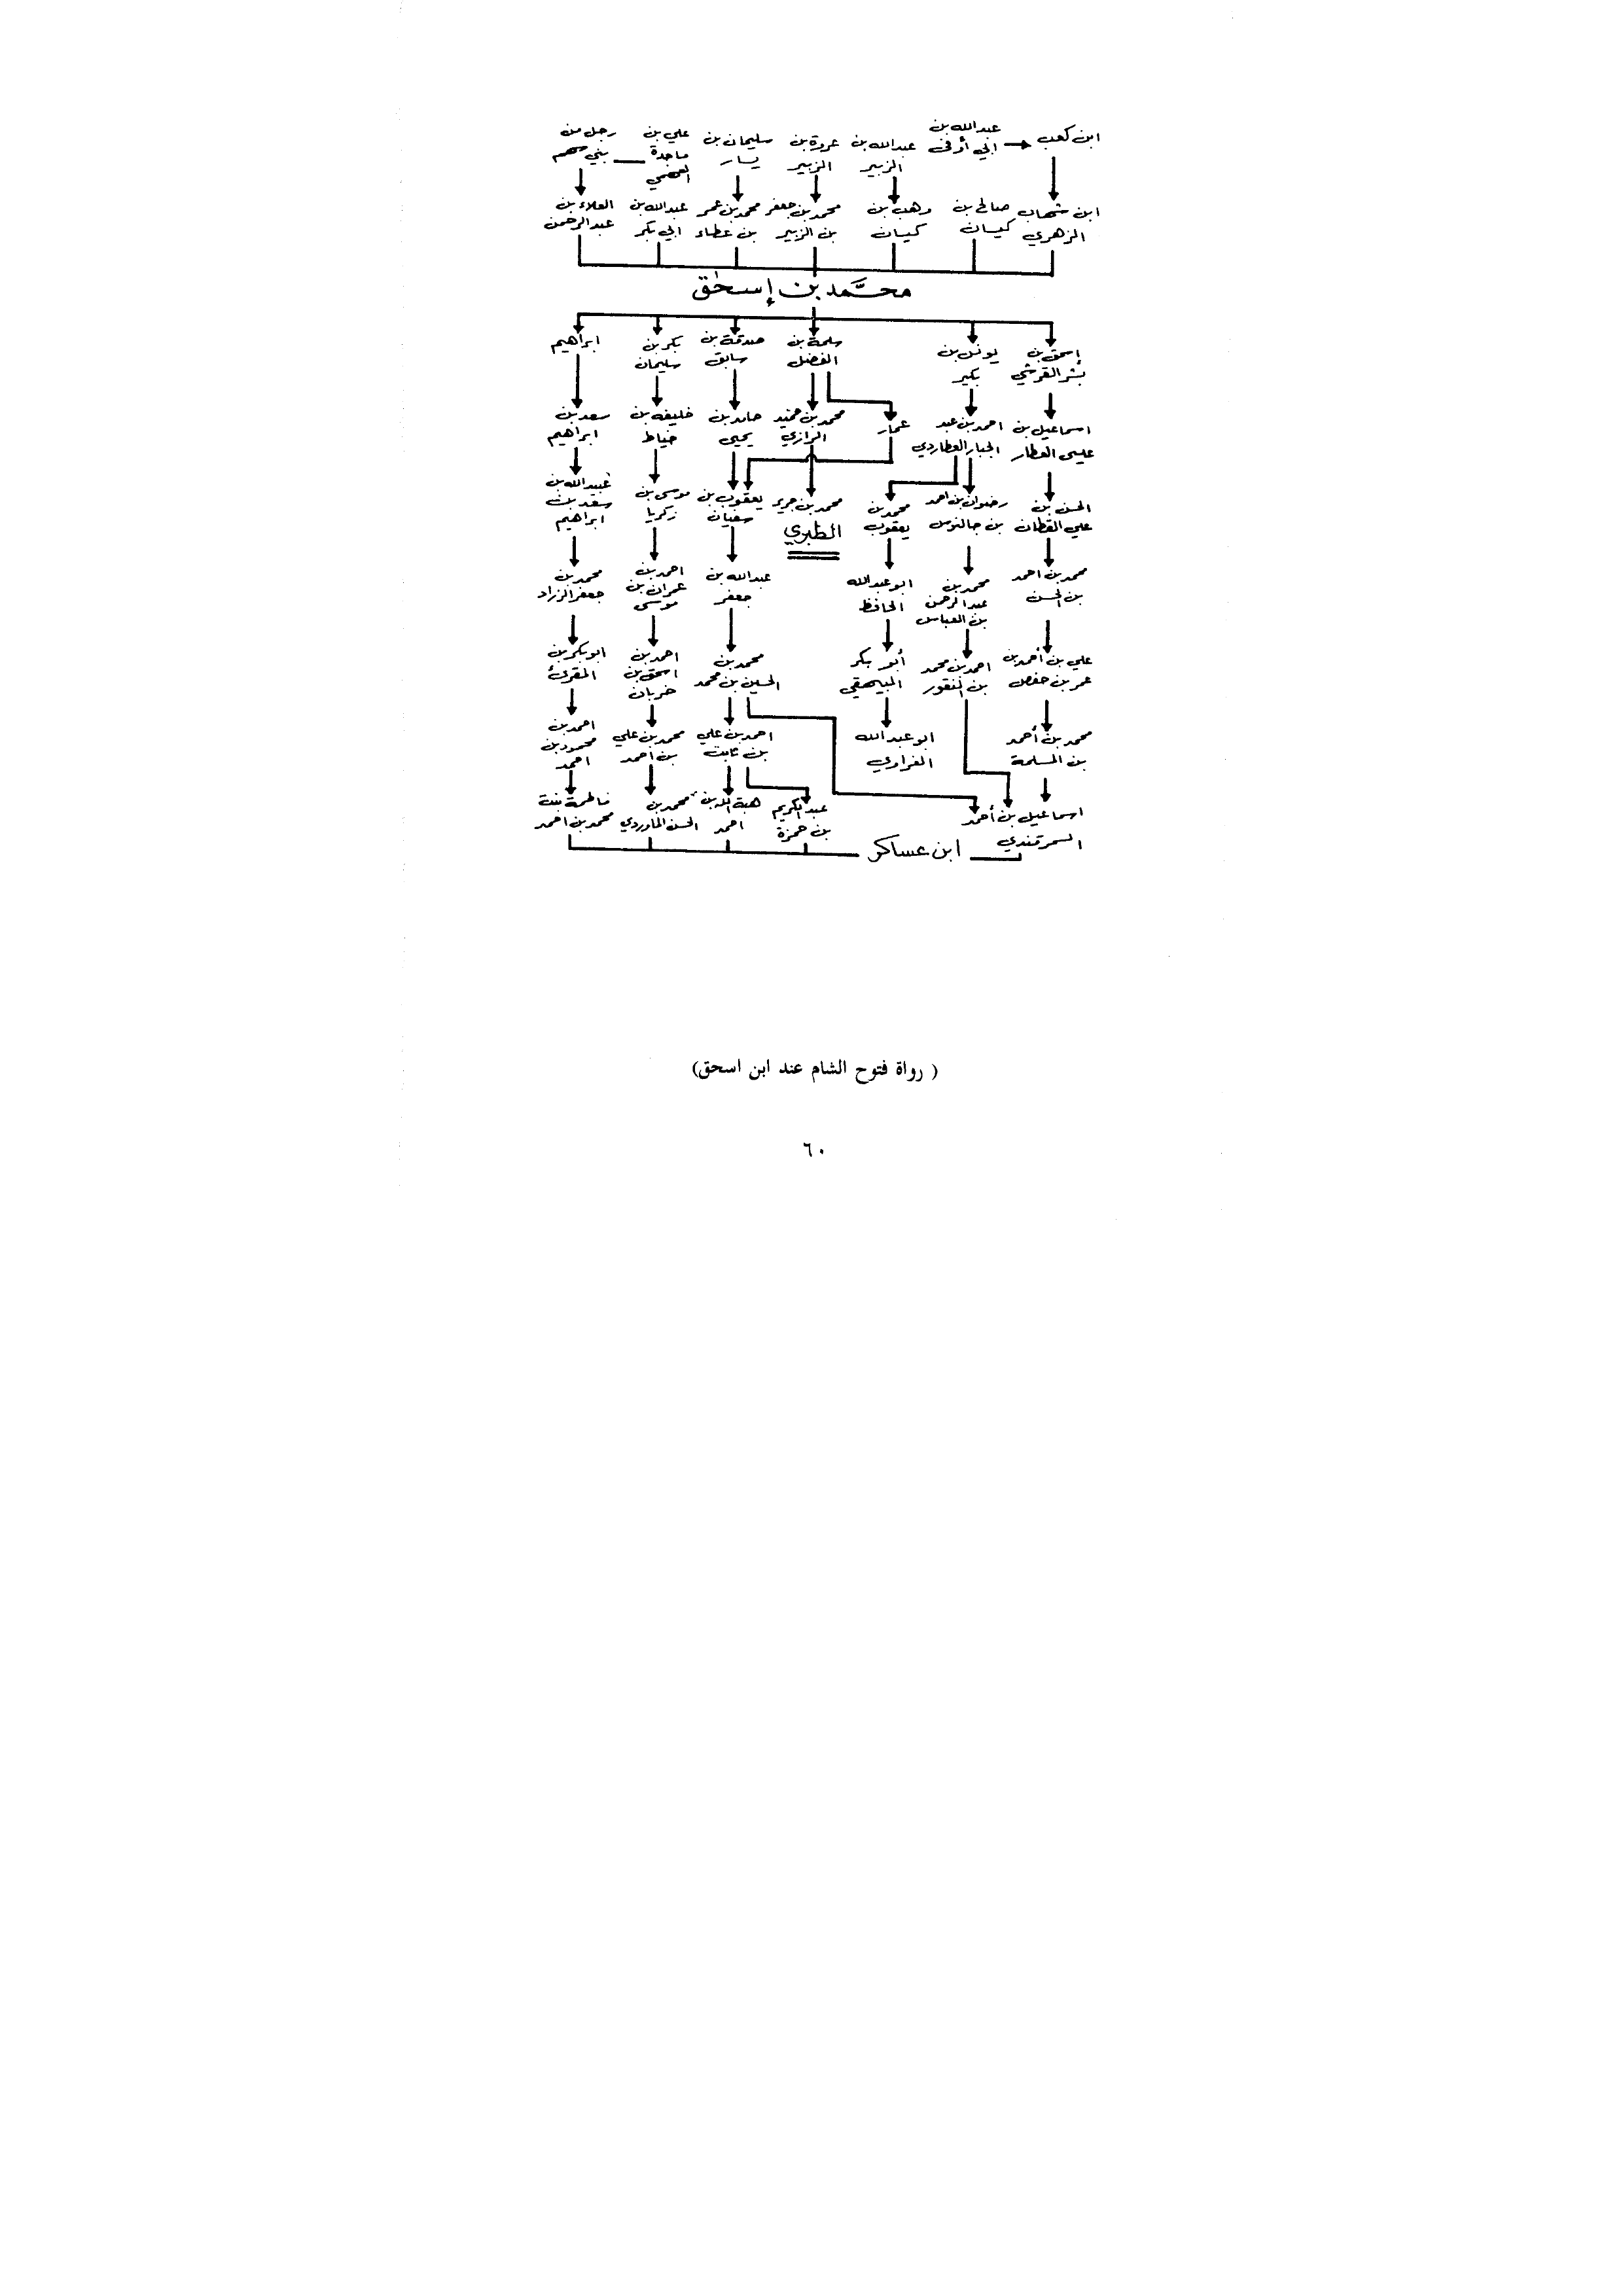 ابن كعب
عبدالله بن
ابي أوفى
عبدالله بن
الزبير
عروة بن
الزبير
سليمان بن
يسار
علي بن
ماجدة
السهمي
رجل من
بني سهم
ابن شهاب
الزهري
صالح بن
كيسان
وهب بن
كيسان
محمد بن جعفر
بن الزبير
محمد بن عمر
بن عطاء
عبدالله بن
ابي بكر
العلاء بن
عبدالرحمن
محمَّد بن إسحٰق
إسحق بن
بشر القرشي
يونس بن
بكير
سلمة بن
الفضل
صدقة بن
سابق
بكر بن
سليمان
ابراهيم
اسماعيل بن
عيسى العطار
احمد بن عبد
الجبار العطاردي
عمار
محمد بن حميد
الرازي
حامد بن
يحيى
خليفه بن
خياط
سعد بن
ابراهيم
الحسن بن
علي القطان
رضوان بن احمد
بن جالنوس
محمد بن
يعقوب
محمد بن جرير
الطبري
يعقوب بن
سفيان
موسى بن
زكريا
عبيدالله بن
سعد بن
ابراهيم
محمد بن احمد
بن الحسن
محمد بن
عبدالرحمن
بن العباس
ابو عبدالله
الحافظ
عبدالله بن
جعفر
احمد بن
عمران بن
موسى
محمد بن
جعفر الزراد
علي بن أحمد بن
عمر بن حفص
احمد بن محمد
بن النقور
أبو بكر
البيهقي
محمد بن
الحسين بن محمد
احمد بن
اسحق بن
خربان
ابو بكر بن
المقرئ
محمد بن أحمد
بن المسلمة
ابو عبدالله
الفراوي
احمد بن علي
بن ثابت
محمد بن علي
بن احمد
احمد بن
محمود بن
احمد
اسماعيل بن أحمد
السمرقندي
عبدالكريم
بن حمزة
هبة الله بن
احمد
محمد بن
الحسن الماوردي
فاطمة بنت
محمد بن احمد
ابن عساكر
( رواة فتوح الشام عند ابن اسحق)
٦٠